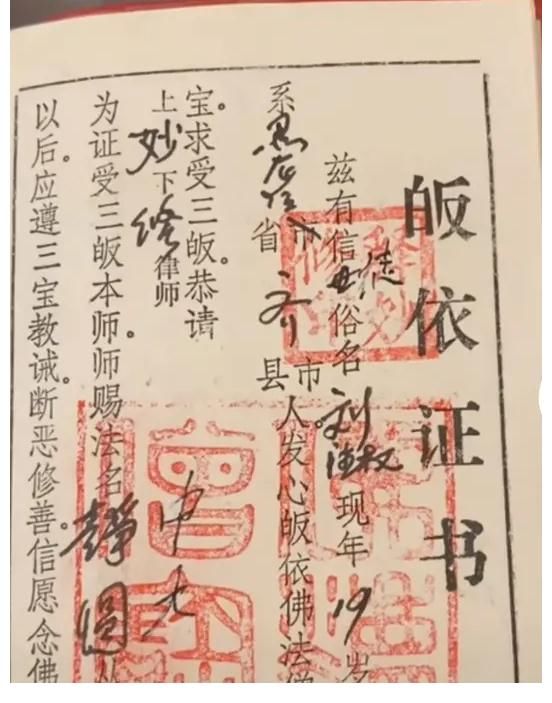 皈依证书
兹有信徒俗名刘现年19岁
系黑龙江省市齐县市人。发心皈依佛法僧
宝。求受三皈。恭请
上妙下修律师
为证受三皈本师。师赐法名静圆
以后。应遵三宝教诫。断恶修善。信愿念佛